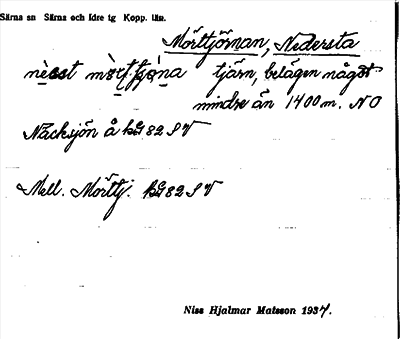 Särna sn Särna och Idre tg Kopp. län.
Mörttjörnan, Nedersta
nèsst mòrttjó̤na tjärn, belägen något
mindre än 1400 m. NO
Näcksjön å kG 82 SV
Mell. Mörttj. kG 82 SV
Niss Hjalmar Matsson 1937.